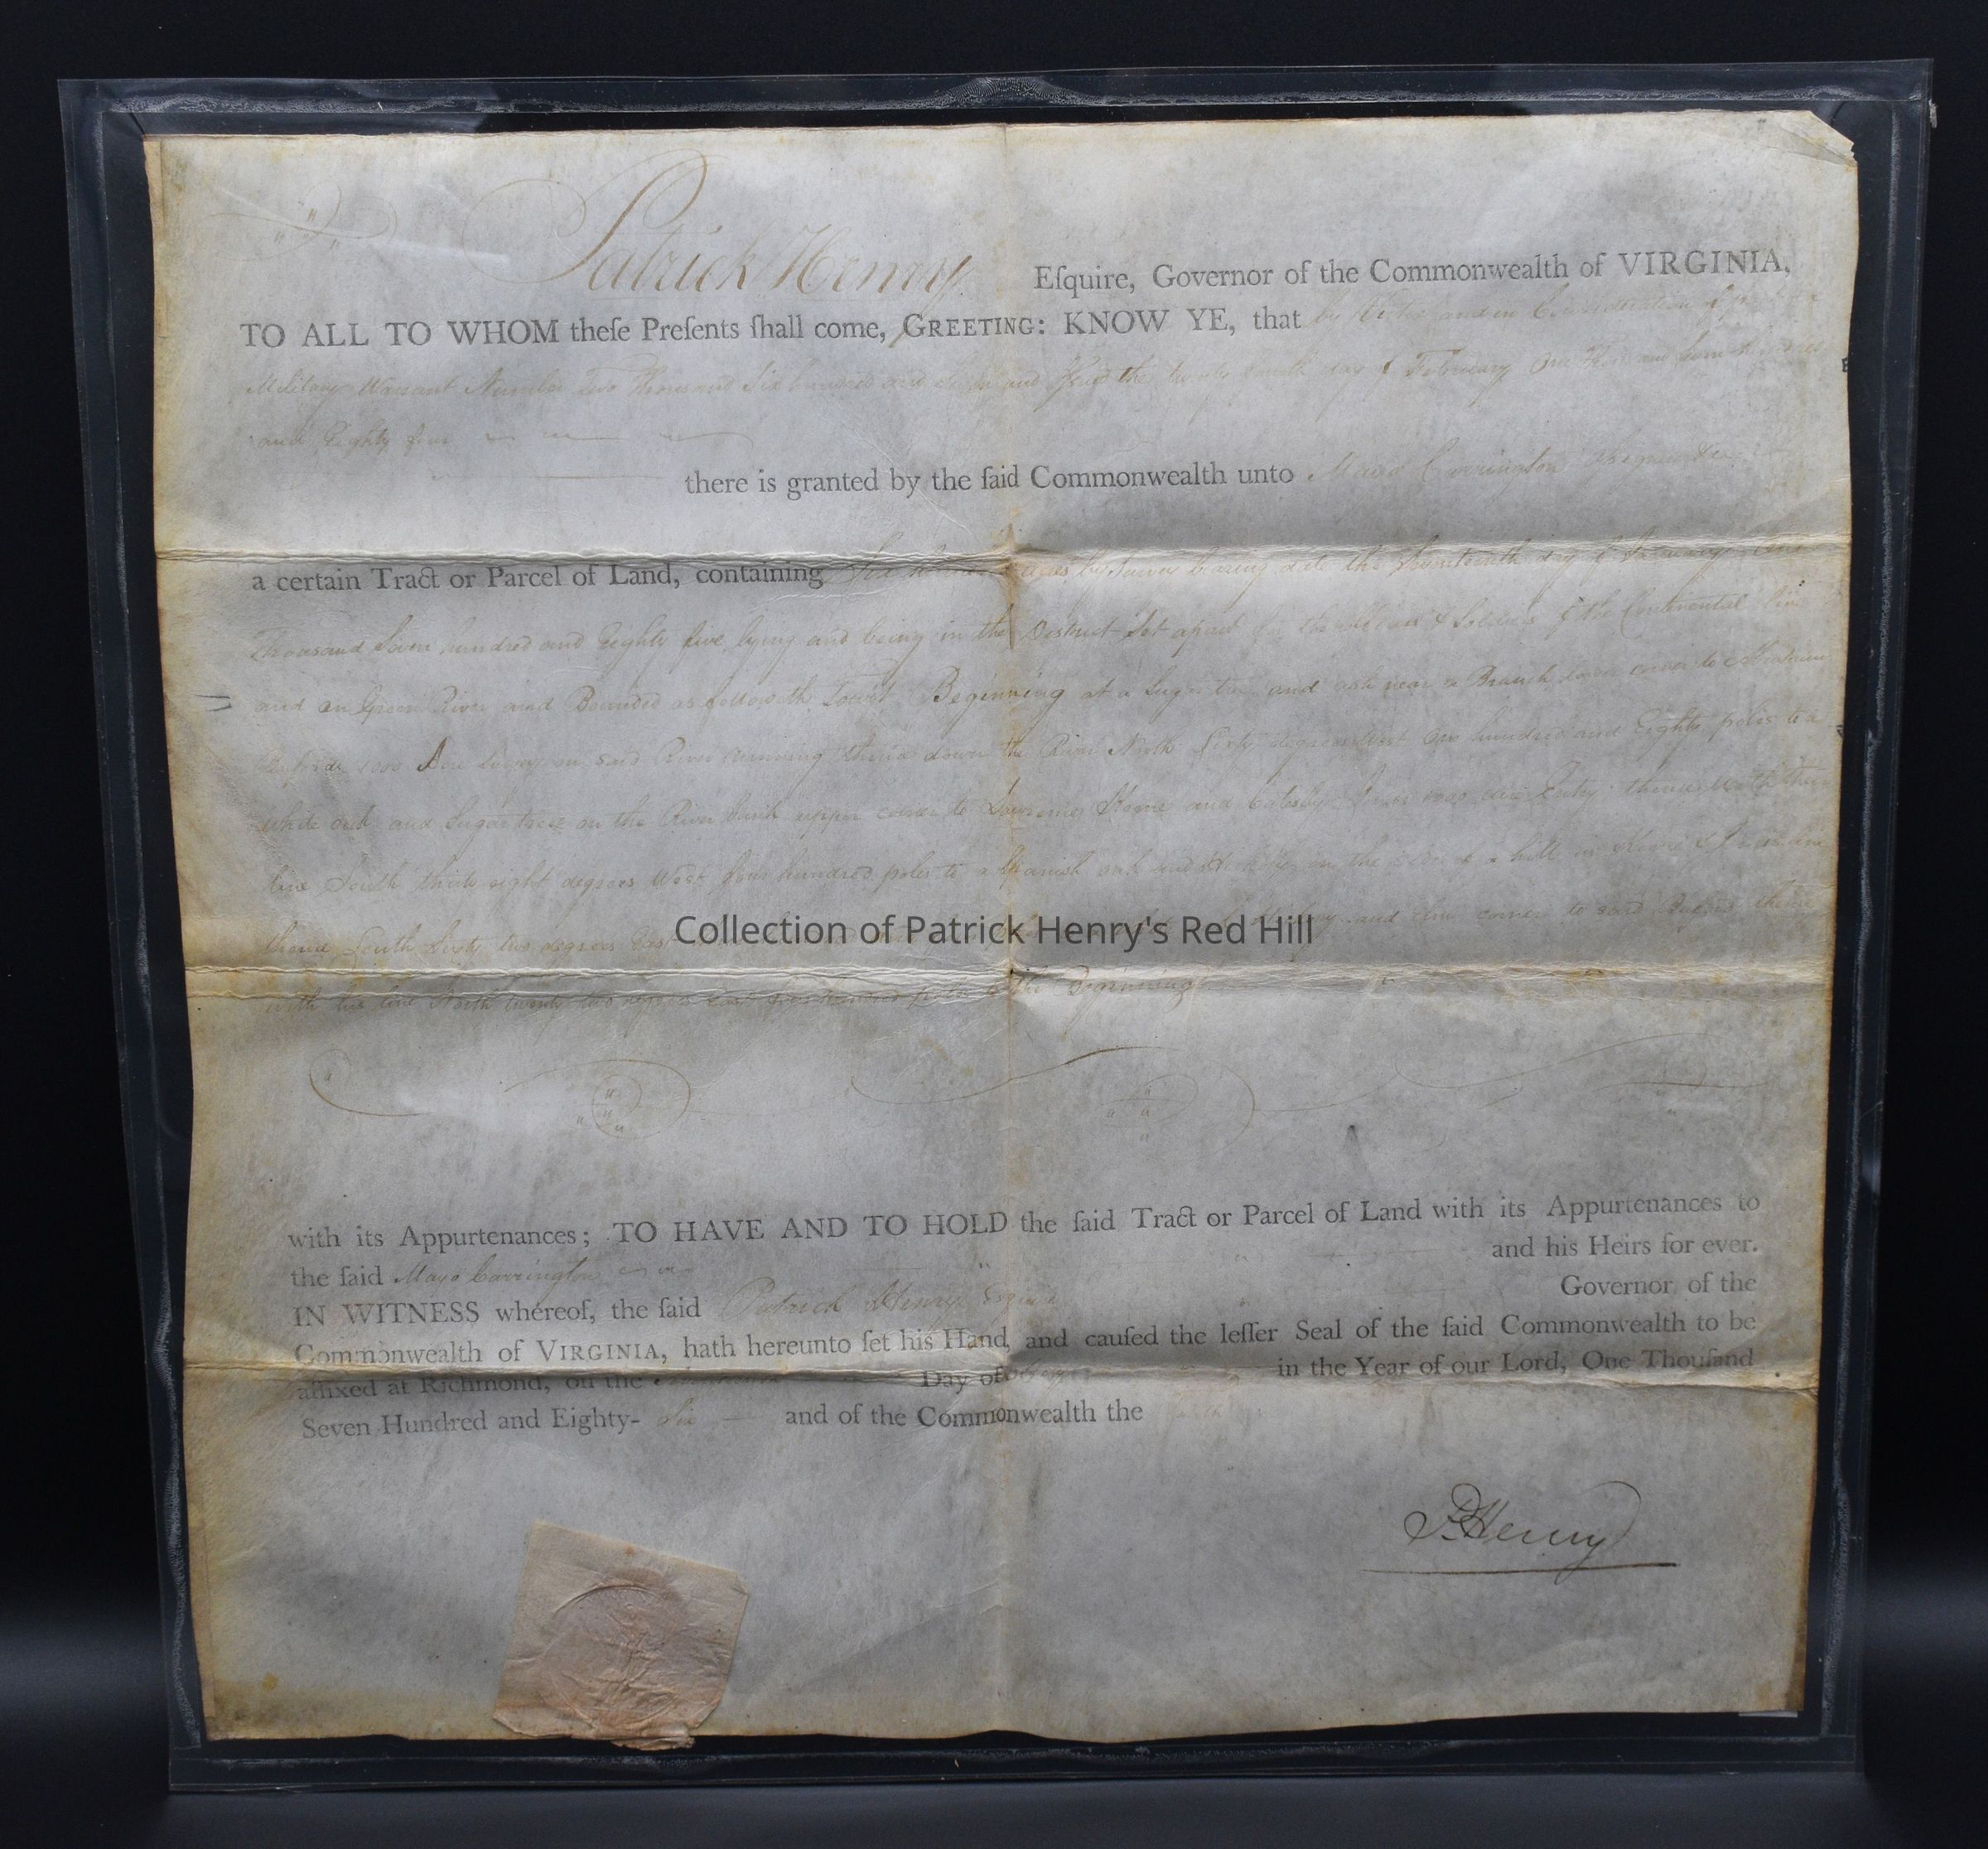 Patrick Henry Eſquire, Governor of the Commonwealth of VIRGINIA,
TO ALL TO WHOM theſe Preſents ſhall come, GREETING: KNOW YE, that by Virtue and in Consideration of
Military Warrant Number Two Thousand Six hundred and and the twenty fourth day of February One Thousand Seven hundred
and Eighty four
there is granted by the ſaid Commonwealth unto Mayo Carrington
a certain Tract or Parcel of Land, containing acres by Survey bearing date the day of One
Thousand Seven hundred and Eighty five lying and being in the District Set apart for the officers & Soldiers of the Continental line
and on Green River and Bounded as followeth Towit Beginning at a Sugar tree and ash near a Branch corner to
1000 Acre Survey on said River running thence down the River North Sixty degrees West One hundred and Eighty poles to a
white oak and Sugar tree on the River bank upper corner to and Catesby 1000 acre Entry thence with their
line South thirty eight degrees West four hundred poles to a Spanish oak and in the side of a hill in line
thence South Sixty two degrees East and corner to said thence
with his line North twenty two degrees East four hundred poles to the Beginning
Collection of Patrick Henry's Red Hill
with its Appurtenances; TO HAVE AND TO HOLD the ſaid Tract or Parcel of Land with its Appurtenances to
the ſaid Mayo Carrington and his Heirs for ever.
IN WITNESS whereof, the ſaid Patrick Henry Esquire Governor of the
Commonwealth of VIRGINIA, hath hereunto ſet his Hand, and cauſed the leſſer Seal of the ſaid Commonwealth to be
affixed at Richmond, on the Day of in the Year of our Lord, One Thouſand
Seven Hundred and Eighty- Six and of the Commonwealth the
P. Henry